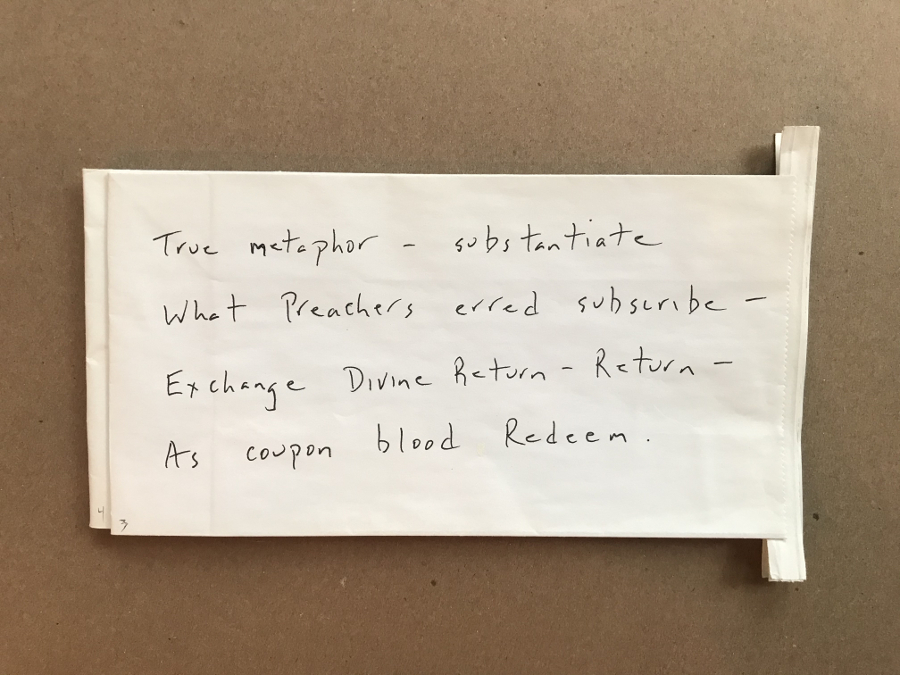 True metaphor - substantiate
What Preachers erred subscribe -
Exchange Divine Return - Return -
As coupon blood Redeem.
4
3